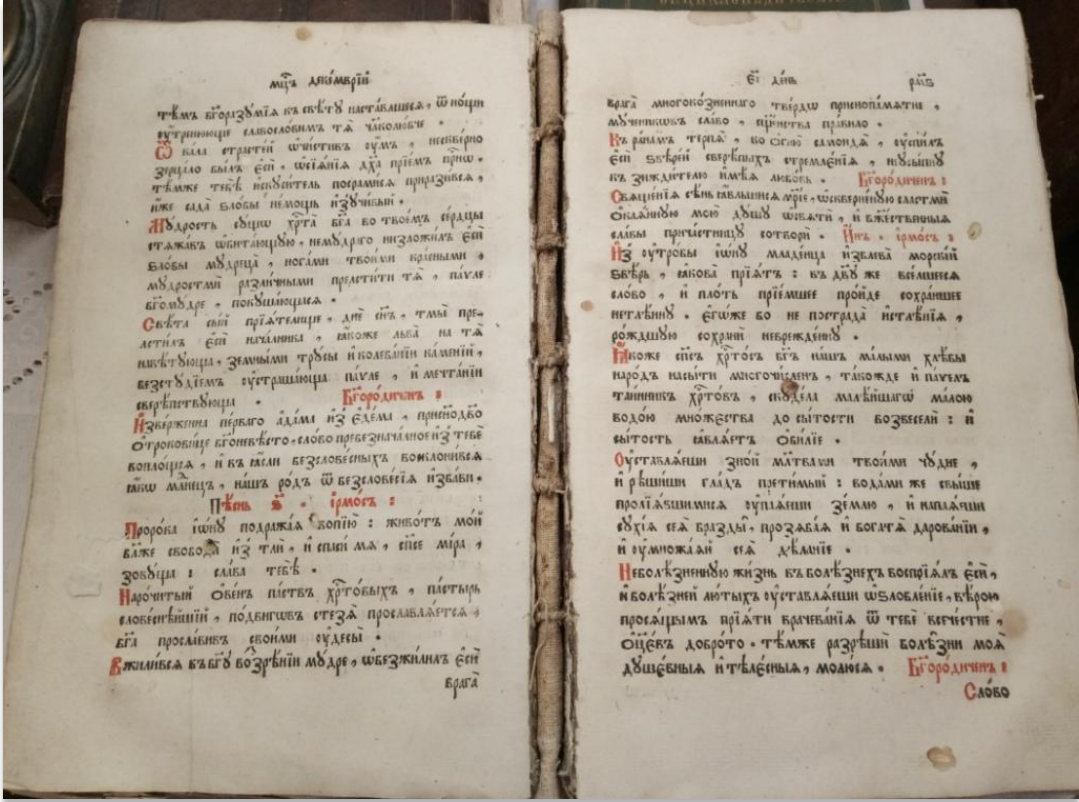 мц҃ъ декемврі́й
тѣ́мъ бг҃оразу́мїѧ къ свѣ́ту наста́вшесѧ , ѿ но́щи
ᲂу҆́тренююще славосло́вимъ тѧ̀ чл҃колю́бче .
Ѿ ка́ла страсте́й ѡ҆чи́стивъ ᲂу҆́мъ , нескве́рно
зерца́ло бы́лъ є҆сѝ , ѡ҆сїѧ́нїѧ дх҃а прїе́мъ при́снѡ .
тѣ́мже тебѐ и҆скуси́тель посрами́сѧ приража́ѧсѧ ,
и҆́же сада̀ ѕло́бы не́мощь и҆зу́чивый .
Му́дрость су́щꙋю хрⷭ҇та̀ бг҃а во твое́мъ се́рдцы
стѧжа́въ ѡ҆бита́ющꙋю , нему́драго низложи́лъ є҆сѝ
ѕло́бы мудреца̀ , нога́ми твои́ми кра́сными ,
му́дростми разли́чными прельсти́ти тѧ̀ , па́ѵле
бг҃ому́дре , покуша́ющасѧ .
Свѣ́та сы́й прїѧ́телище , днѐ сн҃ъ , тмы̀ пре-
льсти́лъ є҆сѝ нача́лника , ꙗ҆́коже льва̀ на тѧ̀
навѣ́тꙋюща , земны́ми трꙋ́сы и҆ колеба́нїи ка́менїй ,
безстꙋ́дїемъ ᲂу҆страша́юща па́ѵле , и҆ мечта́нїи
свере́пствꙋюща . Бг҃оро́диченъ :
И҆зве́ржена пе́рваго а҆да́ма и҆з̾ є҆де́ма , приснодв҃о
Ѻ҆трокови́це бг҃оневѣ́сто , сло́во пребезнача́лное и҆з̾ тебѐ
воплоща́сѧ , и҆ въ ꙗ҆́сли безслове́сныхъ воⷦ҇лони́всѧ
ꙗ҆́кѡ младе́нецъ , на́шъ ро́дъ ѿ безслове́сїѧ и҆зба́ви .
Пѣ́снь ѕ҃ . і҆рмо́съ :
Проро́ка і҆ѡ́ну подража́ѧ вопїю̀ : живо́тъ мо́й
бла́же свободѝ и҆з̾ тлѝ , и҆ спаси́ мѧ , сп҃се ми́ра ,
зову́ща : сла́ва тебѣ̀ .
Нарочи́тый ѻ҆ве́нъ па́ствъ хрⷭ҇то́выхъ , па́стырь
слове́снѣйшїй , по́двигѡвъ стезѧ̀ прославлѧ́етсѧ ,
бг҃а просла́вивъ свои́ми чудесы̀ .
Ближи́всѧ къ бг҃ꙋ воззрѣ́нїи му́дре , ѡ҆безжи́лилъ є҆сѝ
врага̀
є҃і де́нь рм҃ѕ
врага̀ многоко́зненнаго тве́рдѡ приснопа́мѧтне ,
мч҃никѡвъ сла́во , сщ҃е́нства пра́вило .
Къ ра́намъ терпѧ̀ , во ѻ҆́гню самои́дѧ , ᲂу҆спи́лъ
є҆сѝ ѕвѣре́й свере́пыхъ стремле́нїѧ , неᲂу҆сы́пнꙋ
къ зижди́телю и҆мѣ́ѧ любо́вь . Бг҃оро́диченъ :
Свѧще́нїѧ сѣ́нь ꙗ҆́вльшисѧ мр҃іе , ѡ҆скверне́нꙋю сластьмѝ
Ѻ҆каѧ́ннꙋю мою̀ дꙋ́шꙋ ѡ҆свѧтѝ , и҆ бж҃е́ственныѧ
сла́вы прича́стницꙋ сотворѝ . И҆́нъ . і҆рмо́съ :
И҆з̾ ᲂу҆тро́бы і҆ѡ́нꙋ младе́нца и҆зблева̀ морскі́й
ѕвѣ́рь , ꙗ҆кова̀ прїѧ́тъ : въ дв҃ꙋ же все́льшеесѧ
сло́во , и҆ пло́ть прїе́мшее про́йде сохра́ншее
нетлѣ́ннꙋ . є҆гѡ́же бо не пострада̀ и҆стлѣ́нїѧ ,
ро́ждшꙋю сохранѝ невреждéннꙋ .
Ꙗ҆́коже сп҃съ хрⷭ҇то́съ бг҃ъ на́шъ ма́лыми хлѣ́бы
наро́дъ насы́ти многочи́сленъ , та́кожде и҆ па́ѵелъ
таи́нникъ хрⷭ҇то́въ , скꙋде́ла малѣ́йшагѡ ма́лою
водо́ю мно́жества до сы́тости возвеселѝ : и҆
сы́тость ꙗ҆влѧ́етъ ѻ҆би́лїе .
Оу҆ставлѧ́еши зно́й мл҃тва́ми твои́ми чю́дне ,
и҆ рѣши́ши гла́дъ претѧ́щый : вода́ми же свы́ше
пролїѧ́вшимисѧ ᲂу҆поѧ́еши зе́млю , и҆ напаѧ́еши
сꙋхі́ѧ сеѧ̀ бразды̀ , прозѧба́ѧ и҆ богатѧ̀ дарова́нїи ,
и҆ ᲂу҆множа́ѧй сеѧ̀ дѣ́ланїе .
Неболѣ́зненнꙋю жи́знь въ болѣ́знехъ воспрїѧ́лъ є҆сѝ ,
и҆ болѣ́зней лю́тыхъ ᲂу҆ставлѧ́еши ѡ҆ѕлобле́нїе , вѣ́рою
просѧ́щымъ прїѧ́ти врачева́нїѧ ѿ тебѐ всече́стне ,
Ѻ҆ц҃є́въ добро́то . тѣ́мже разрѣшѝ болѣ́зни моѧ̑
дꙋше́вныѧ и҆ тѣле́сныѧ , молю́сѧ . Бг҃оро́диченъ :
Сло́во